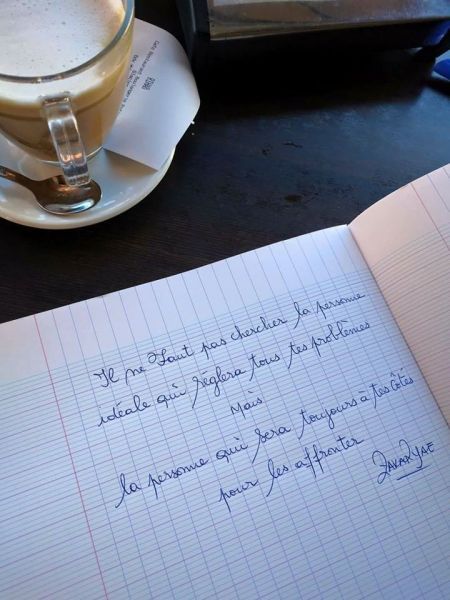 Il ne faut pas chercher la personne
idéale qui règlera tous tes problèmes
Mais
la personne qui sera toujours à tes côtés
pour les affronter
ZAKARYAE